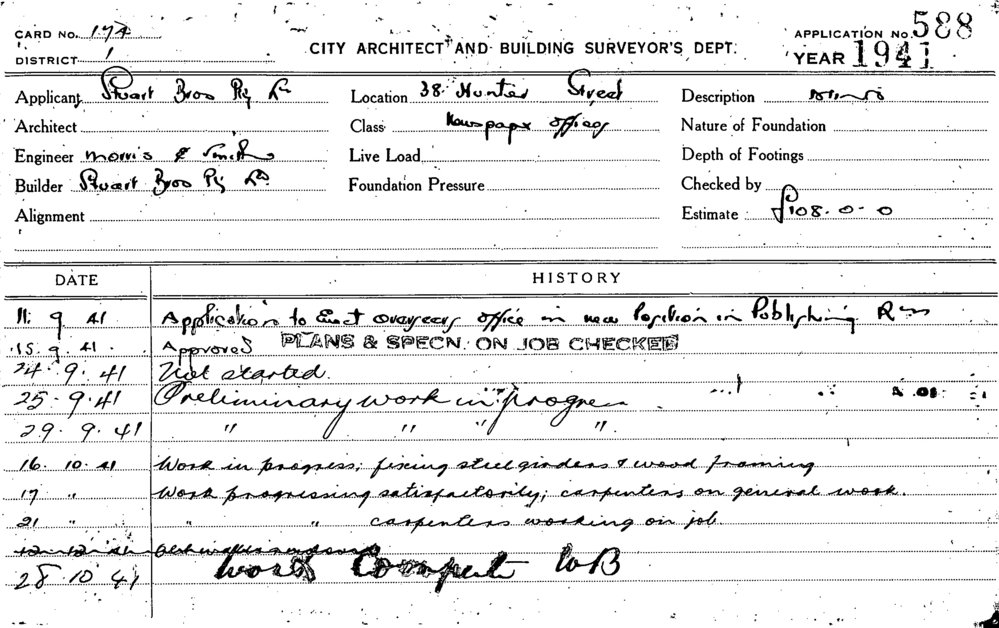 CARD No. 174
DISTRICT 1
CITY ARCHITECT AND BUILDING SURVEYOR'S DEPT.
APPLICATION No. 588
YEAR 1941
Applicant Stuart Bros Pty Ld
Architect
Engineer Morris & Smith
Builder Stuart Bros Pty Ld
Alignment
Location 38 Hunter Street
Class Newspaper offices
Live Load
Foundation Pressure
Description
Nature of Foundation
Depth of Footings
Checked by
Estimate £108.0.0
DATE HISTORY
11. 9 41 Application to Erect overseers office in new Position in Publishing Rm
15. 9 41. Approved PLANS & SPECN. ON JOB CHECKED
24. 9. 41 Not started.
25. 9. 41 Preliminary work in progress
29. 9. 41 " " " "
16. 10. 41 Work in progress; fixing steel girders & wood framing
17 " Work progressing satisfactorily; carpenters on general work.
21 " " " carpenters working on job.
12-12-41
28 10 41 Work Complete WB